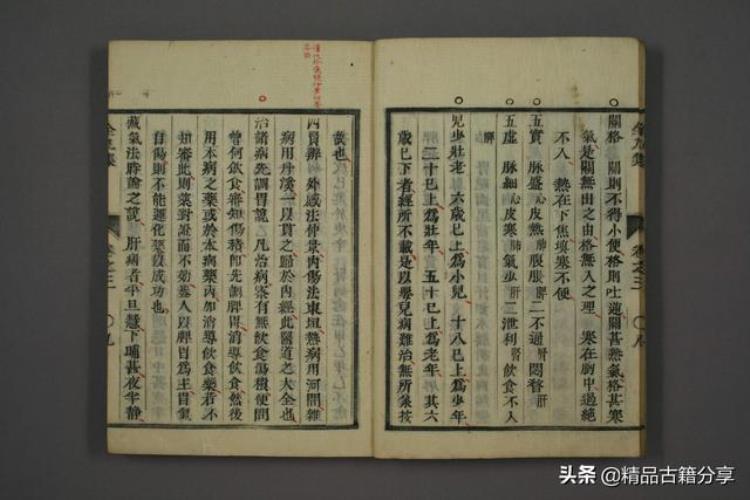 關格 關則不得小便格則吐逆關甚熱氣格甚寒
氣是關無出之由格無入之理 寒在胸中遏絕
不入 熱在下焦填塞不便
五實 脈盛心皮熱肺腹脹脾二不通腎悶瞀肝
五虛 脈細心皮寒肺氣少肝二泄利腎飲食不入
脾
兒少壯老 六歲已上為小兒 十八已上為少年
三十已上為壯年 五十已上為老年 其六
歲已下者經所不載是以嬰兒病難治無所承按
故也
四賢辨 外感法仲景內傷法東垣熱病用河間雜
病用丹溪一以貫之歸於內經此醫道之大全也
治諸病先調胃說 凡治病審有無飲食傷積便問
曾何飲食審知傷積即先調脾胃消導飲食然後
用本病之藥或於本病藥內加消導飲食藥若不
知審此則藥對證而不効葢人以脾胃為主胃氣
自傷則不能運化藥餌成功也
藏氣法時論之說 肝病者平旦慧下晡甚夜半靜
卷之三
卷之三
頭条 @精品古籍分享